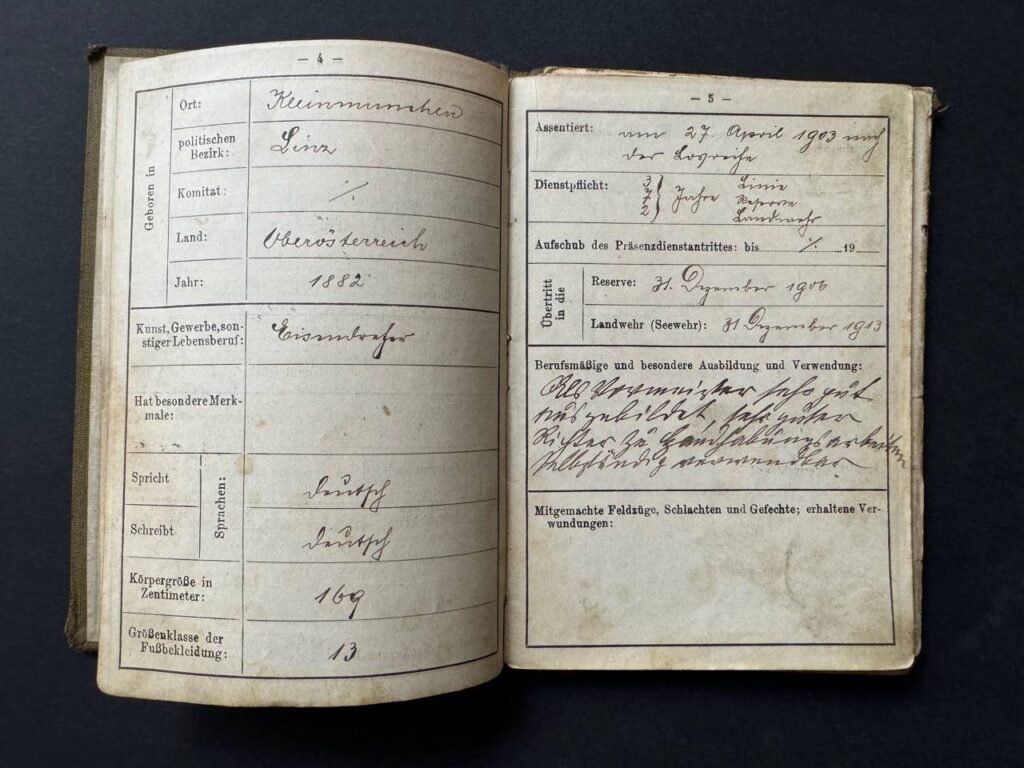 — 4 —
Geboren in
Ort: Kleinmünchen
politischen Bezirk: Linz
Komitat: ·/.
Land: Oberösterreich
Jahr: 1882
Kunst, Gewerbe, son-
stiger Lebensberuf: Eisendreher
Hat besondere Merk-
male:
Sprachen:
Spricht deutsch
Schreibt deutsch
Körpergröße in
Zentimeter: 169
Größenklasse der
Fußbekleidung: 13
— 5 —
Assentiert: am 27. April 1903 nach
der Losreihe
Dienstpflicht: 3 Jahre Linie
7 Reserve
2 Landwehr
Aufschub des Präsenzdienstantrittes: bis ·/. 19
Übertritt in die
Reserve: 31. Dezember 1906
Landwehr (Seewehr): 31 Dezember 1913
Berufsmäßige und besondere Ausbildung und Verwendung:
Als Vormeister sehr gut
ausgebildet, sehr guter
Richter zu Handhabungsarbeiten
selbständig verwendbar
Mitgemachte Feldzüge, Schlachten und Gefechte; erhaltene Ver-
wundungen: